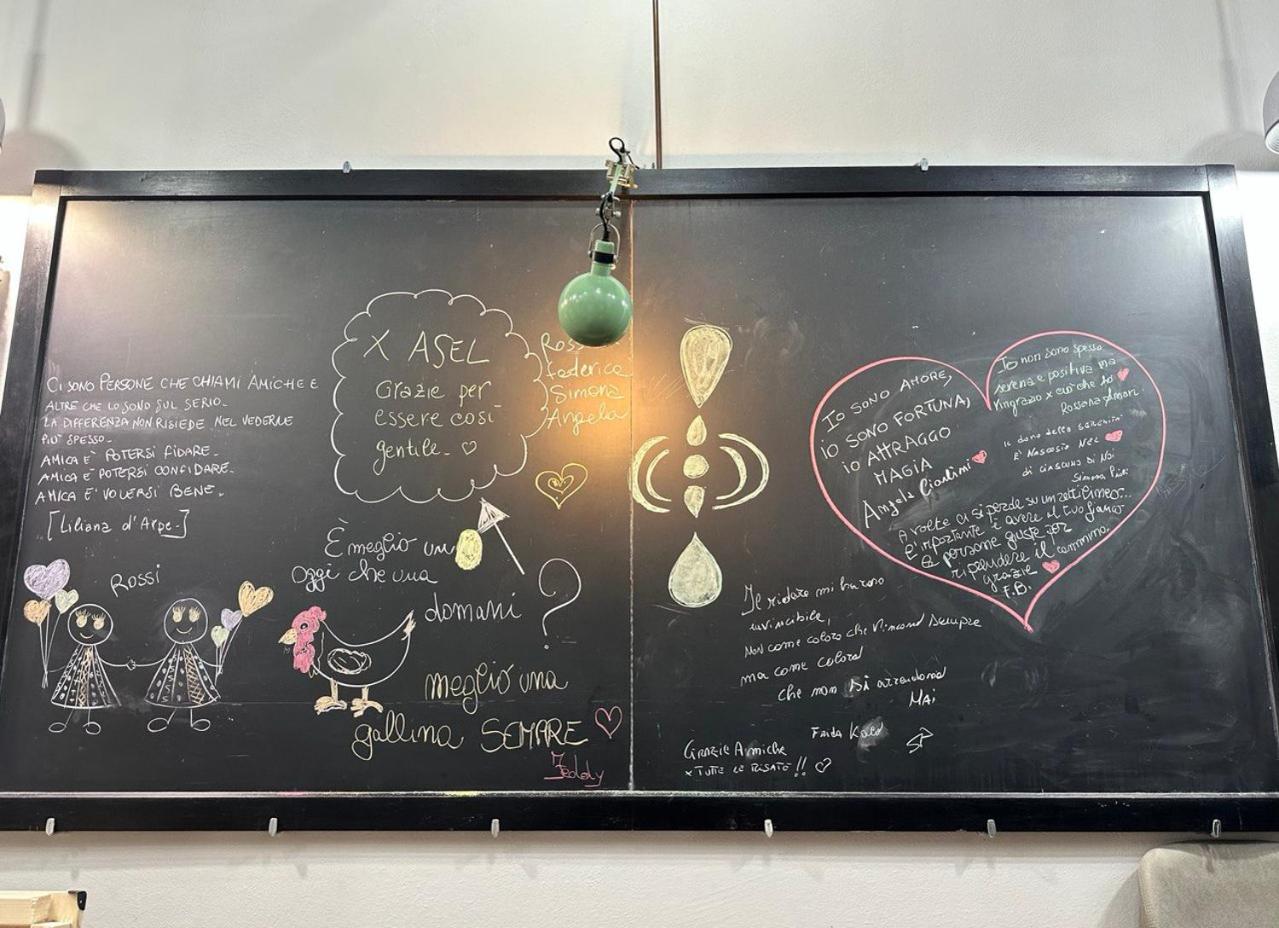 CI SONO PERSONE CHE CHIAMI AMICHE E
ALTRE CHE LO SONO SUL SERIO.
LA DIFFERENZA NON RISIEDE NEL VEDERLE
PIÙ SPESSO.
AMICA È POTERSI FIDARE.
AMICA È POTERSI CONFIDARE.
AMICA E' VOLERSI BENE.
[Liliana d'Arpe]
ROSSI
X ASEL
Grazie per
essere così
gentile. ♡
Federica
Simona
Angela
È meglio un
oggi che una
domani ?
meglio una
gallina SEMPRE
Io SONO AMORE,
io SONO FORTUNA,
io ATTRAGGO
MAGIA
Angela
Io non sono spesso
serena e positiva ma
ringrazio x ciò che ho
Rossana
E' Nascosto Nel
di ciascuno Di Noi
Simona
A volte ci si perde su un
E' importante è avere al tuo fianco
le persone giuste per
riprendere il cammino.
grazie
F.B.
Il ridere mi ha reso
invincibile,
Non come coloro che Vincono Sempre
ma come coloro
che non Si arrendono
MAi
Frida Kalo
GRAZIE Amiche
x TUTTE LE RISATE !! ♡